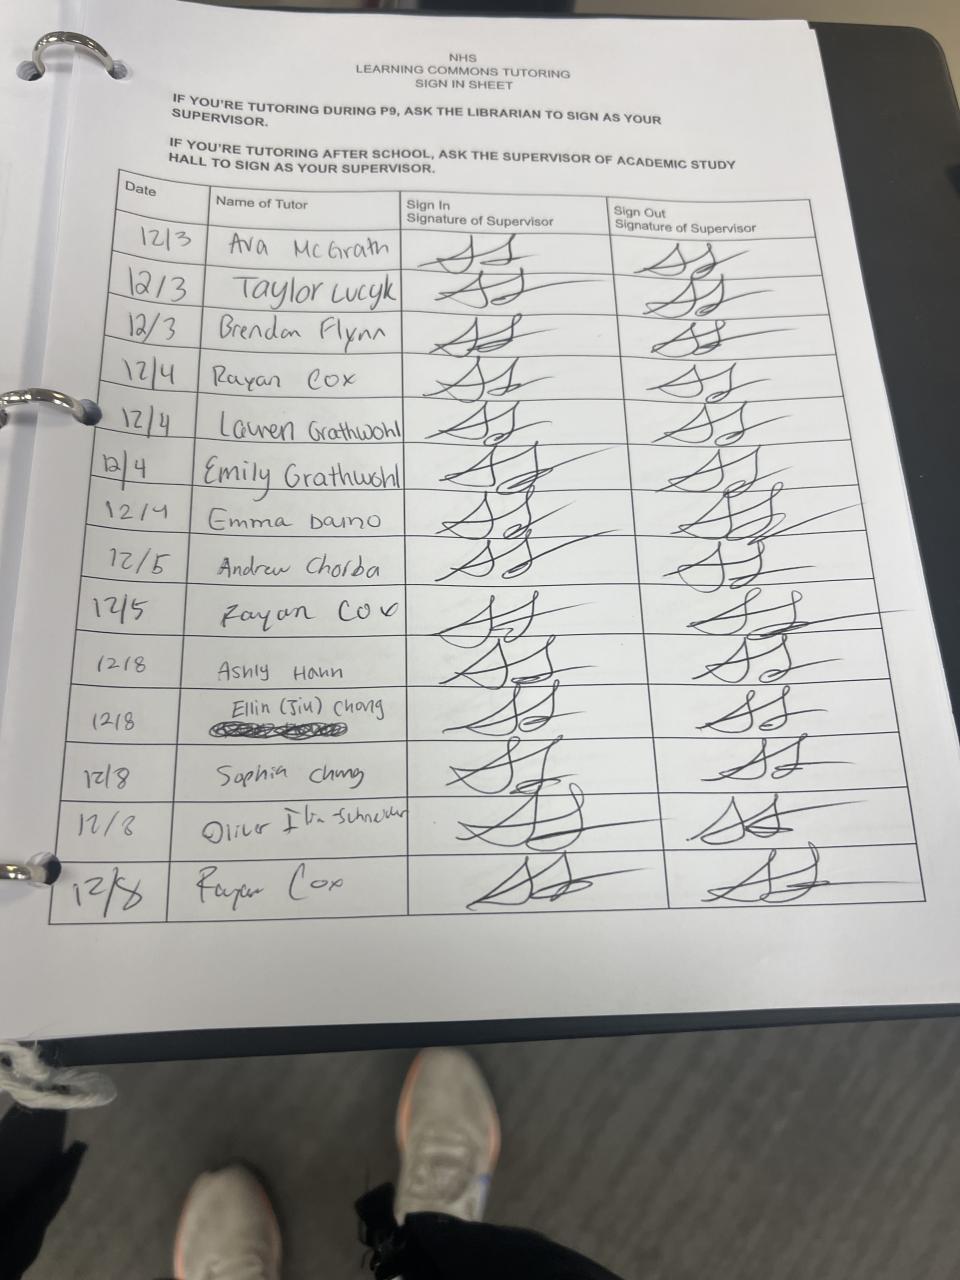 NHS
LEARNING COMMONS TUTORING
SIGN IN SHEET
IF YOU'RE TUTORING DURING P9, ASK THE LIBRARIAN TO SIGN AS YOUR
SUPERVISOR.
IF YOU'RE TUTORING AFTER SCHOOL, ASK THE SUPERVISOR OF ACADEMIC STUDY
HALL TO SIGN AS YOUR SUPERVISOR.
Date Name of Tutor Sign In Signature of Supervisor Sign Out Signature of Supervisor
12/3 Ava McGrath
12/3 Taylor Lucyk
12/3 Brendan Flynn
12/4 Rayan Cox
12/4 Lauren Grathwohl
12/4 Emily Grathwohl
12/4 Emma Daino
12/5 Andrew Chorba
12/5 Rayan Cox
12/8 Ashly Hahn
12/8 Ellin (Jiu) Chong
12/8 Sophia Chung
12/8 Oliver
12/8 Rayan Cox